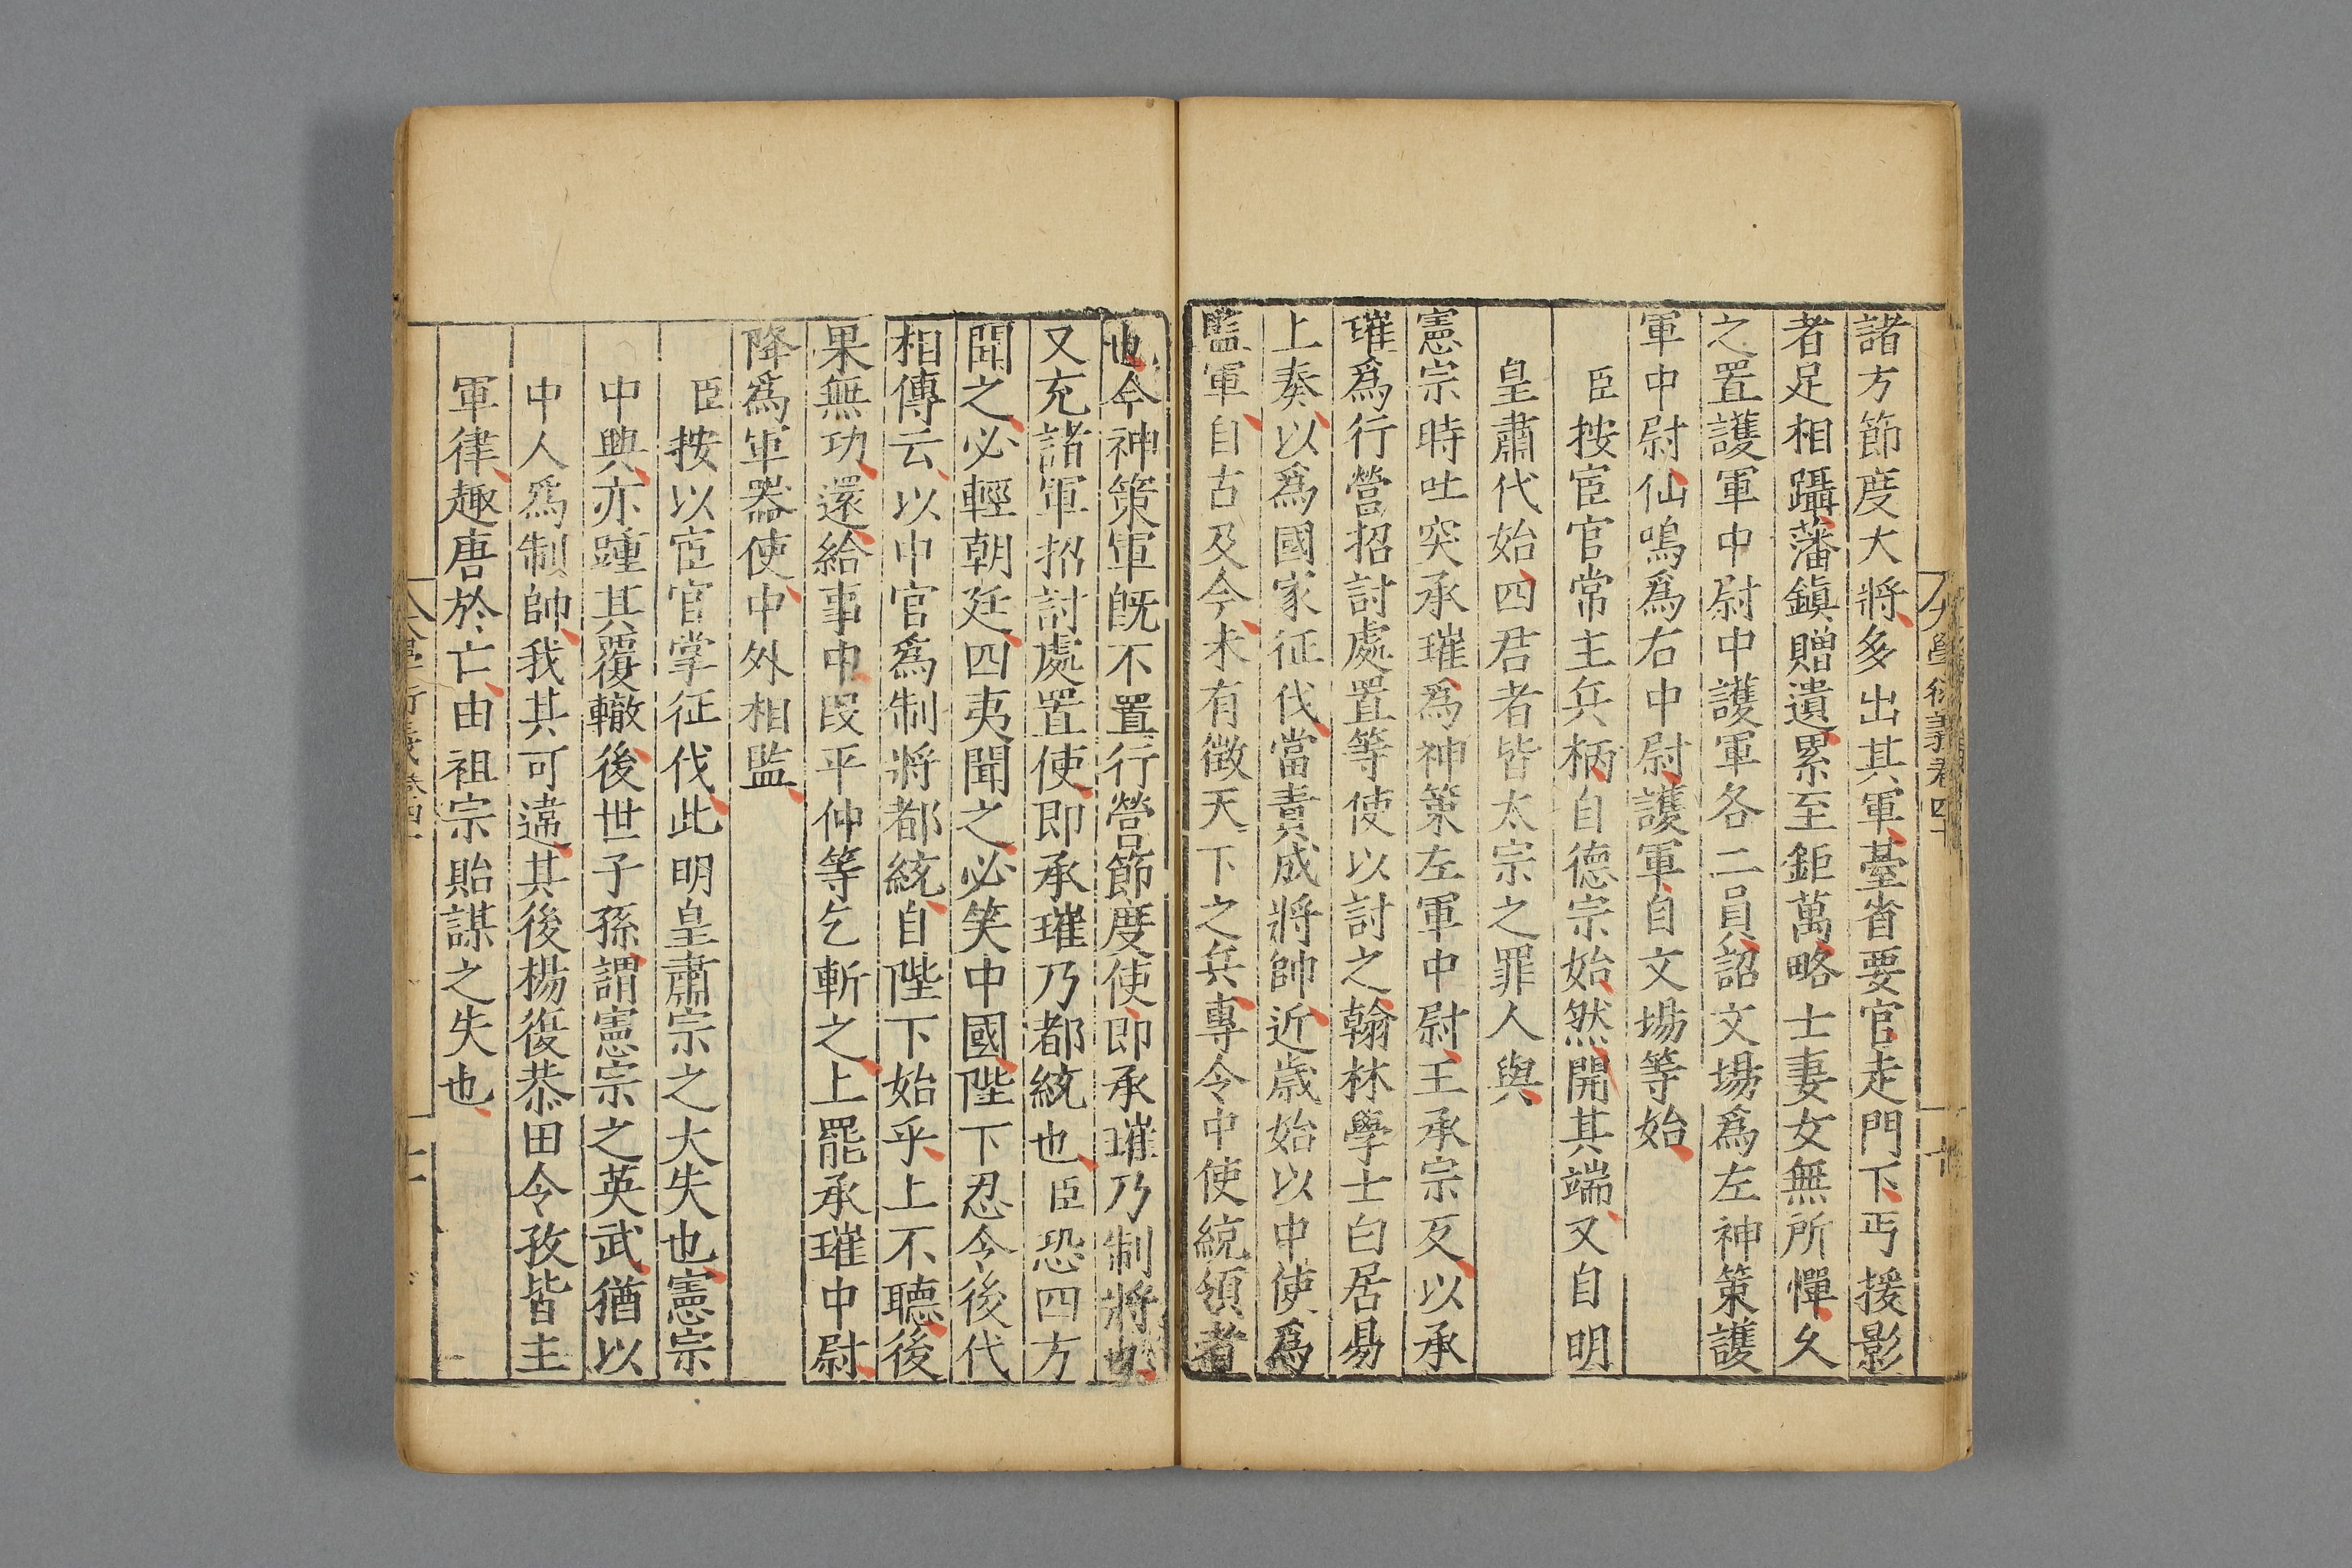 諸方節度大將多出其軍臺省要官走門下丐援影
者足相躡藩鎮贈遺累至鉅萬略士妻女無所憚久
之置護軍中尉中護軍各二員詔文場爲左神策護
軍中尉仙鳴爲右中尉護軍自文場等始
臣按宦官常主兵柄自德宗始然開其端又自明
皇肅代始四君者皆太宗之罪人與
憲宗時吐突承璀爲神策左軍中尉王承宗反以承
璀爲行營招討處置等使以討之翰林學士白居易
上奏以爲國家征伐當責成將帥近歲始以中使爲
監軍自古及今未有徵天下之兵專令中使統領者
也今神策軍旣不置行營節度使即承璀乃制將也
又充諸軍招討處置使即承璀乃都統也臣恐四方
聞之必輕朝廷四夷聞之必笑中國陛下忍令後代
相傳云以中官爲制將都統自陛下始乎上不聽後
果無功還給事中段平仲等乞斬之上罷承璀中尉
降爲軍器使中外相監
臣按以宦官掌征伐此明皇肅宗之大失也憲宗
中興亦踵其覆轍後世子孫謂憲宗之英武猶以
中人爲制帥我其可違其後楊復恭田令孜皆主
軍律趣唐於亡由祖宗貽謀之失也